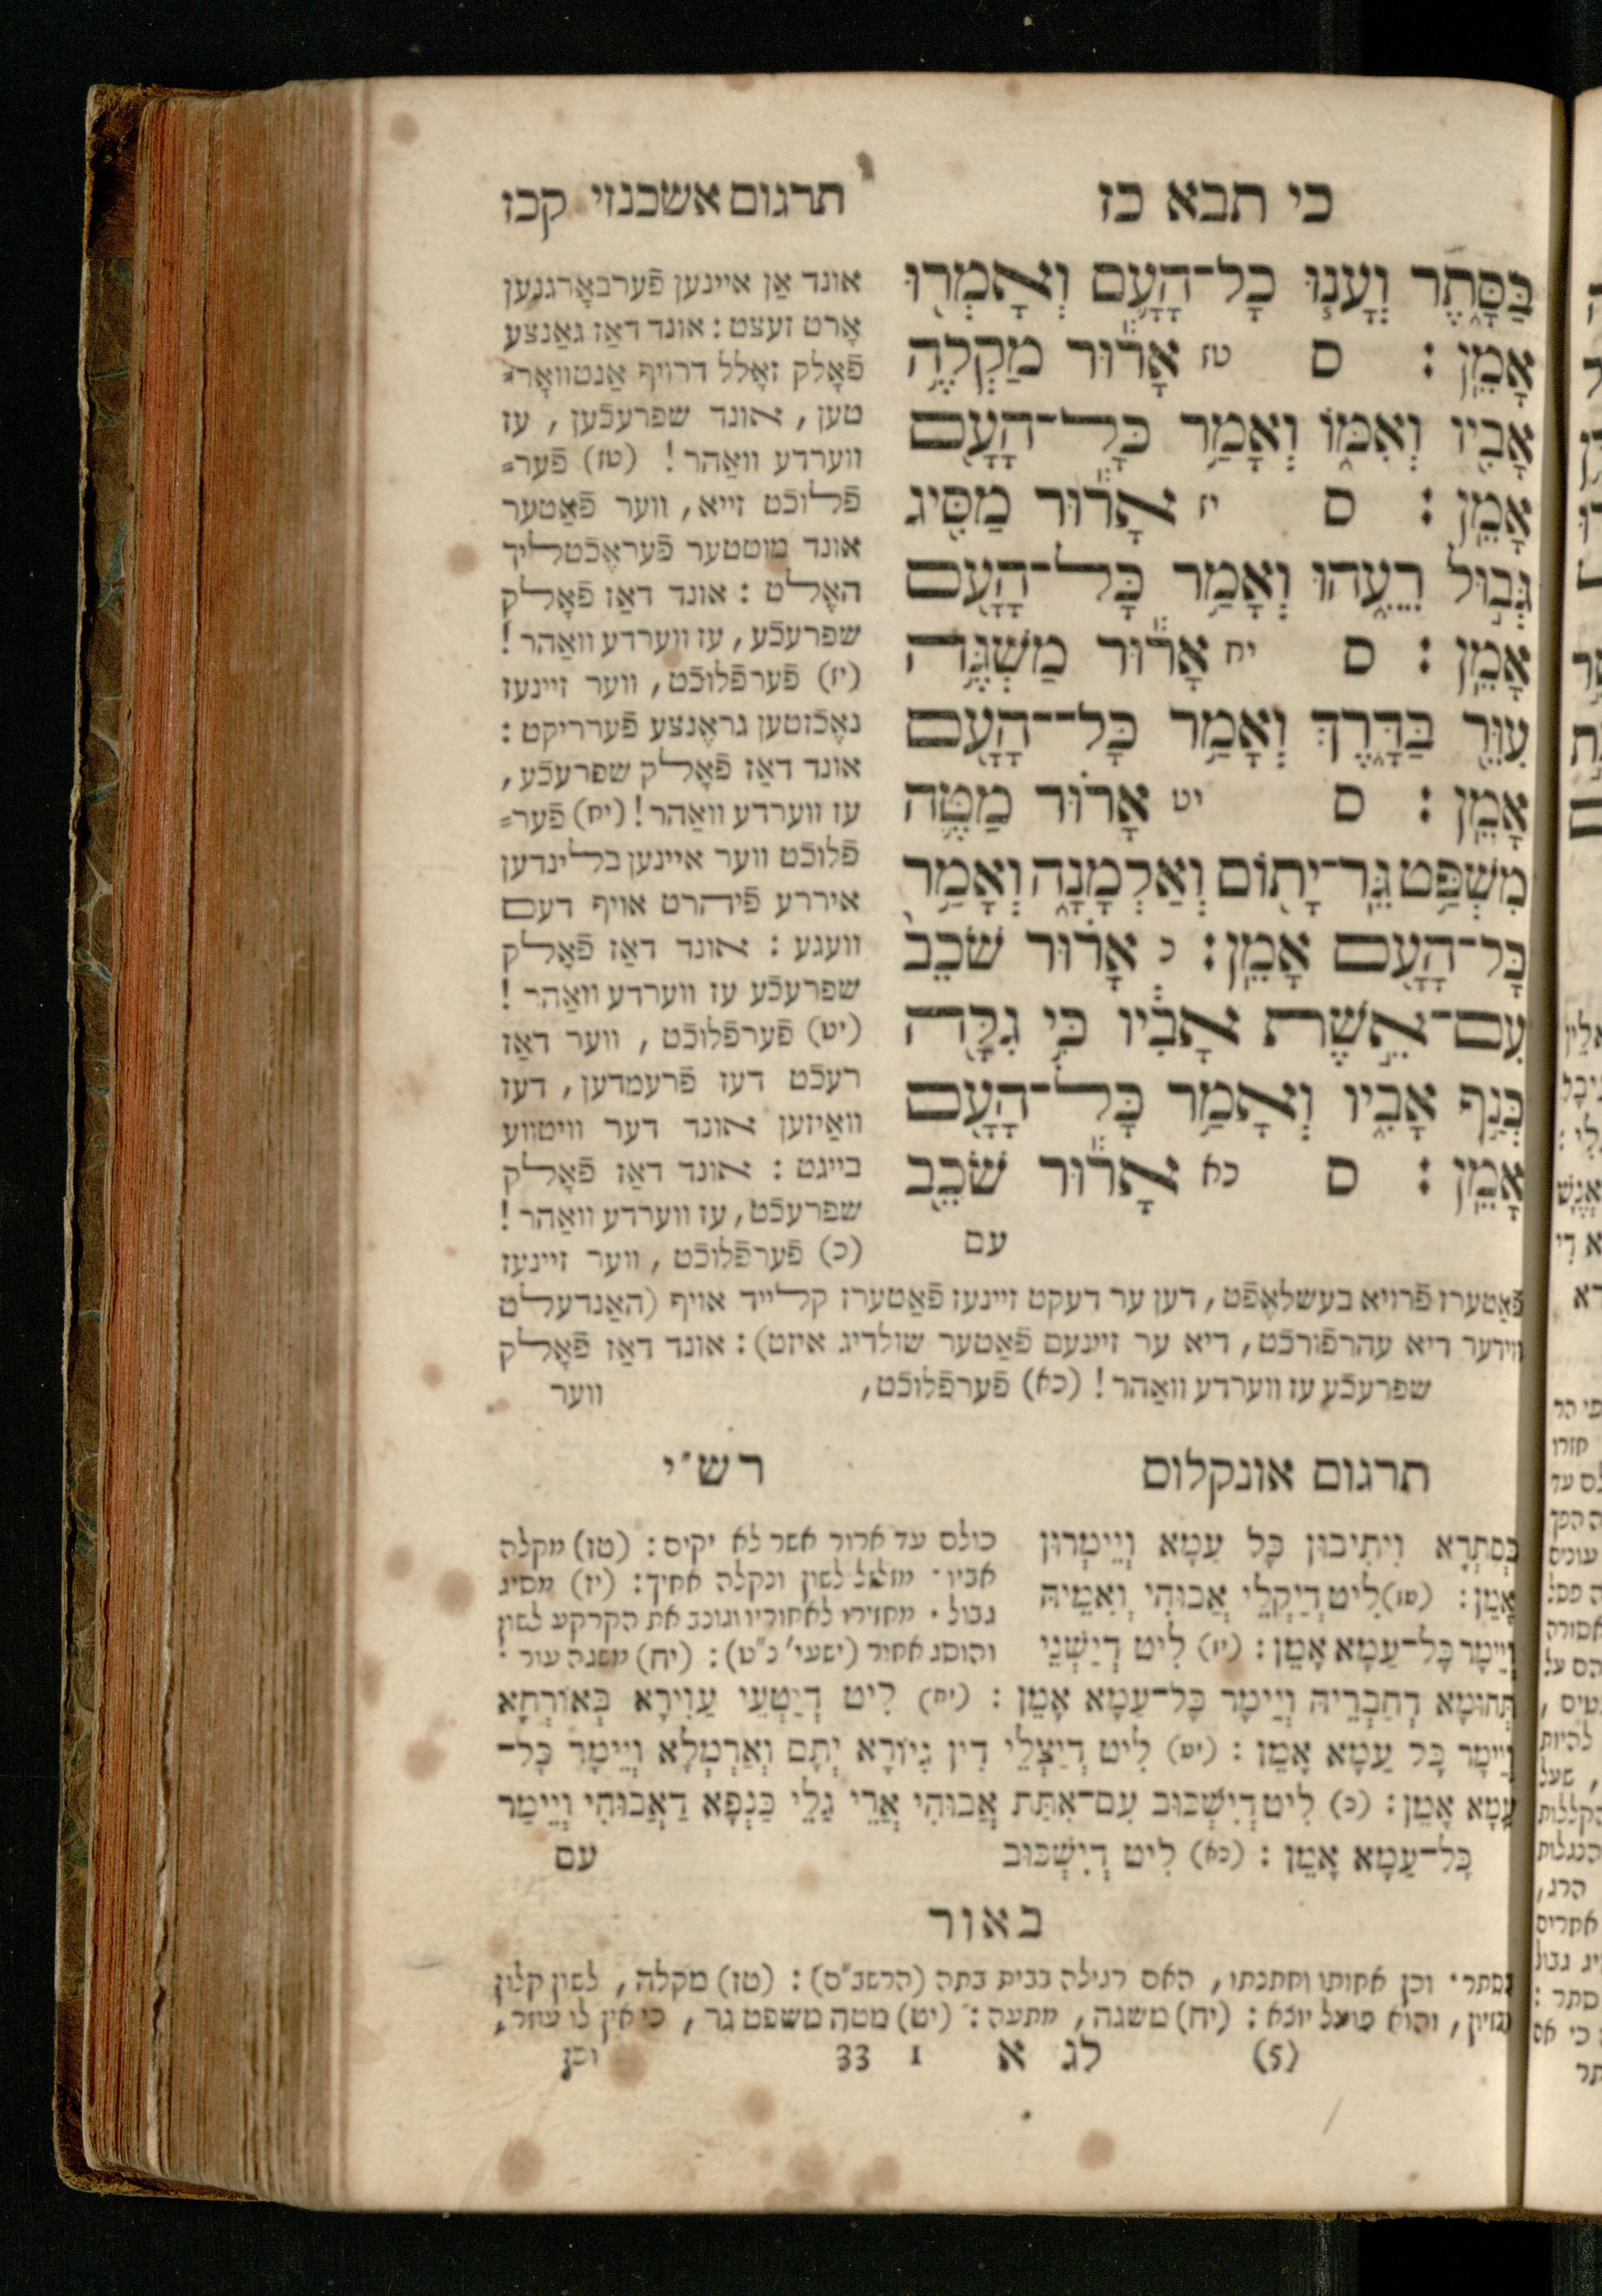 כי תבא כז
תרגום אשכנזי קכז
בַּסָּ֑תֶר וְעָנ֧וּ כָל־הָעָ֛ם וְאָמְר֖וּ
אָמֵֽן : ס טז אָר֕וּר מַקְלֶ֥ה
אָבִ֖יו וְאִמּ֑וֹ וְאָמַ֥ר כָּל־הָעָ֖ם
אָמֵֽן : ס יז אָר֕וּר מַסִּ֖יג
גְּב֣וּל רֵעֵ֑הוּ וְאָמַ֥ר כָּל־הָעָ֖ם
אָמֵֽן : ס יח אָר֕וּר מַשְׁגֶּ֥ה
עִוֵּ֖ר בַּדָּ֑רֶךְ וְאָמַ֥ר כָּל־הָעָ֖ם
אָמֵֽן : ס יט אָר֗וּר מַטֶּ֛ה
מִשְׁפַּ֥ט גֵּר־יָת֖וֹם וְאַלְמָנָ֑ה וְאָמַ֥ר
כָּל־הָעָ֖ם אָמֵֽן : כ אָר֗וּר שֹׁכֵב֙
עִם־אֵ֣שֶׁת אָבִ֔יו כִּ֥י גִלָּ֖ה
כְּנַ֣ף אָבִ֑יו וְאָמַ֥ר כָּל־הָעָ֖ם
אָמֵֽן : ס כא אָר֕וּר שֹׁכֵ֖ב
עם
אונד אַן איינען פֿערבאָרגנען
אָרט זעצט : אונד דאַז גאַנצע
פֿאָלק זאָלל דרויף אַנטוואָר=
טען, אונד שפרעכֿען, עז
ווערדע וואַהר! (טז) פֿער=
פֿלוכֿט זייא, ווער פֿאַטער
אונד מוטטער פֿעראֶכֿטליך
האֶלט : אונד דאַז פֿאָלק
שפרעכֿע, עז ווערדע וואַהר!
(יז) פֿערפֿלוכֿט, ווער זיינעז
נאֶכֿזטען גראֶנצע פֿerריקט :
אונד דאַז פֿאָלק שפרעכֿע,
עז ווערדע וואַהר! (יח) פֿער=
פֿלוכֿט ווער איינען בלינדען
איררע פֿיהרט אויף דעם
וועגע : אונד דאַז פֿאָלק
שפרעכֿע עז ווערדע וואַהר!
(יט) פֿערפֿלוכֿט, ווער דאַז
רעכֿט דעז פֿרעמדען, דעז
וואַיזען אונד דער וויטווע
בייגט : אונד דאַז פֿאָלק
שפרעכֿט, עז ווערדע וואַהר!
(כ) פֿערפֿלוכֿט, ווער זיינעז
פֿאַטערז פֿרויא בעשלאֶפֿט, דען ער דעקט זיינעז פֿאַטערז קלייד אויף (האַנדעלט
ווידער דיא עהרפֿורכֿט, דיא ער זיינעם פֿאַטער שולדיג איזט) : אונד דאַז פֿאָלק
שפרעכֿע עז ווערדע וואַהר! (כא) פֿערפֿלוכֿט,
ווער
תרגום אונקלוס
בְּסִתְרָא וִיתִיבוּן כָּל עַמָא וְיֵימְרוּן
אָמֵן : (טז) לִיט דְיַקְלֵי אֲבוּהִי וְאִמֵיהּ
וְיֵימַר כָּל־עַמָא אָמֵן : (יז) לִיט דְיַשְׁנֵי
תְּחוּמָא דְחַבְרֵיהּ וְיֵימַר כָּל־עַמָא אָמֵן : (יח) לִיט דְיַטְעֵי עַוִירָא בְּאוֹרְחָא
וְיֵימַר כָּל עַמָא אָמֵן : (יט) לִיט דְיַצְלֵי דִין גִיוֹרָא יְתָם וְאַרְמְלָא וְיֵימַר כָּל־
עַמָא אָמֵן : (כ) לִיט דְיִשְׁכּוּב עִם־אִתַּת אֲבוּהִי אֲרֵי גַלֵי כַּנְפָא דַאֲבוּהִי וְיֵימַר
כָּל־עַמָא אָמֵן : (כא) לִיט דְיִשְׁכּוּב
עם
רש״י
כולם עד ארור אשר לא יקים : (טז) מקלה
אביו · מזלזל לשון ונקלה אחיך : (יז) מסיג
גבול · מחזירו לאחוריו וגונב את הקרקע לשון
והוסג אחור (ישעי' נ"ט) : (יח) משגה עור ·
באור
בסתר · וכן אחותו וחתנתו, האם רגילה בבית בתה (הרשב"ם) : (טז) מקלה, לשון קלון
ובזיון, והוא פועל יוצא : (יח) משגה, מתעה : (יט) מטה משפט גר, כי אין לו עוזר,
(5) לג א 1 33
וכן